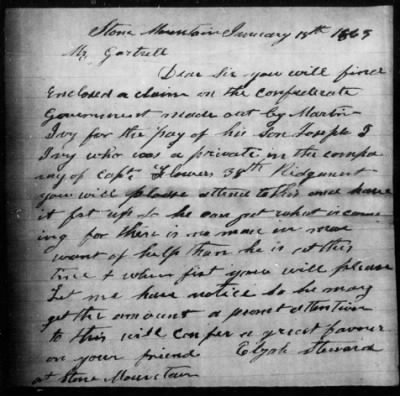 Stone Mountain January 18th 1863
Mr Gartrell
Dear Sir you will find
Enclosed a claim on the confederate
Government made out by Martin
Ivy for the pay of his Son Joseph J
Ivy who was a private in the compa
ny of capt Flowers 38th Ridgement
you will please attend to this and have
it fxt up so he can get what is come
ing for there is no man in more
want of help than he is at this
time & when fixt you will please
Let me have notice so he may
get the amount a promt attention
to this will confer a great favour
on your friend Elijah Steward
at Stone Mountain